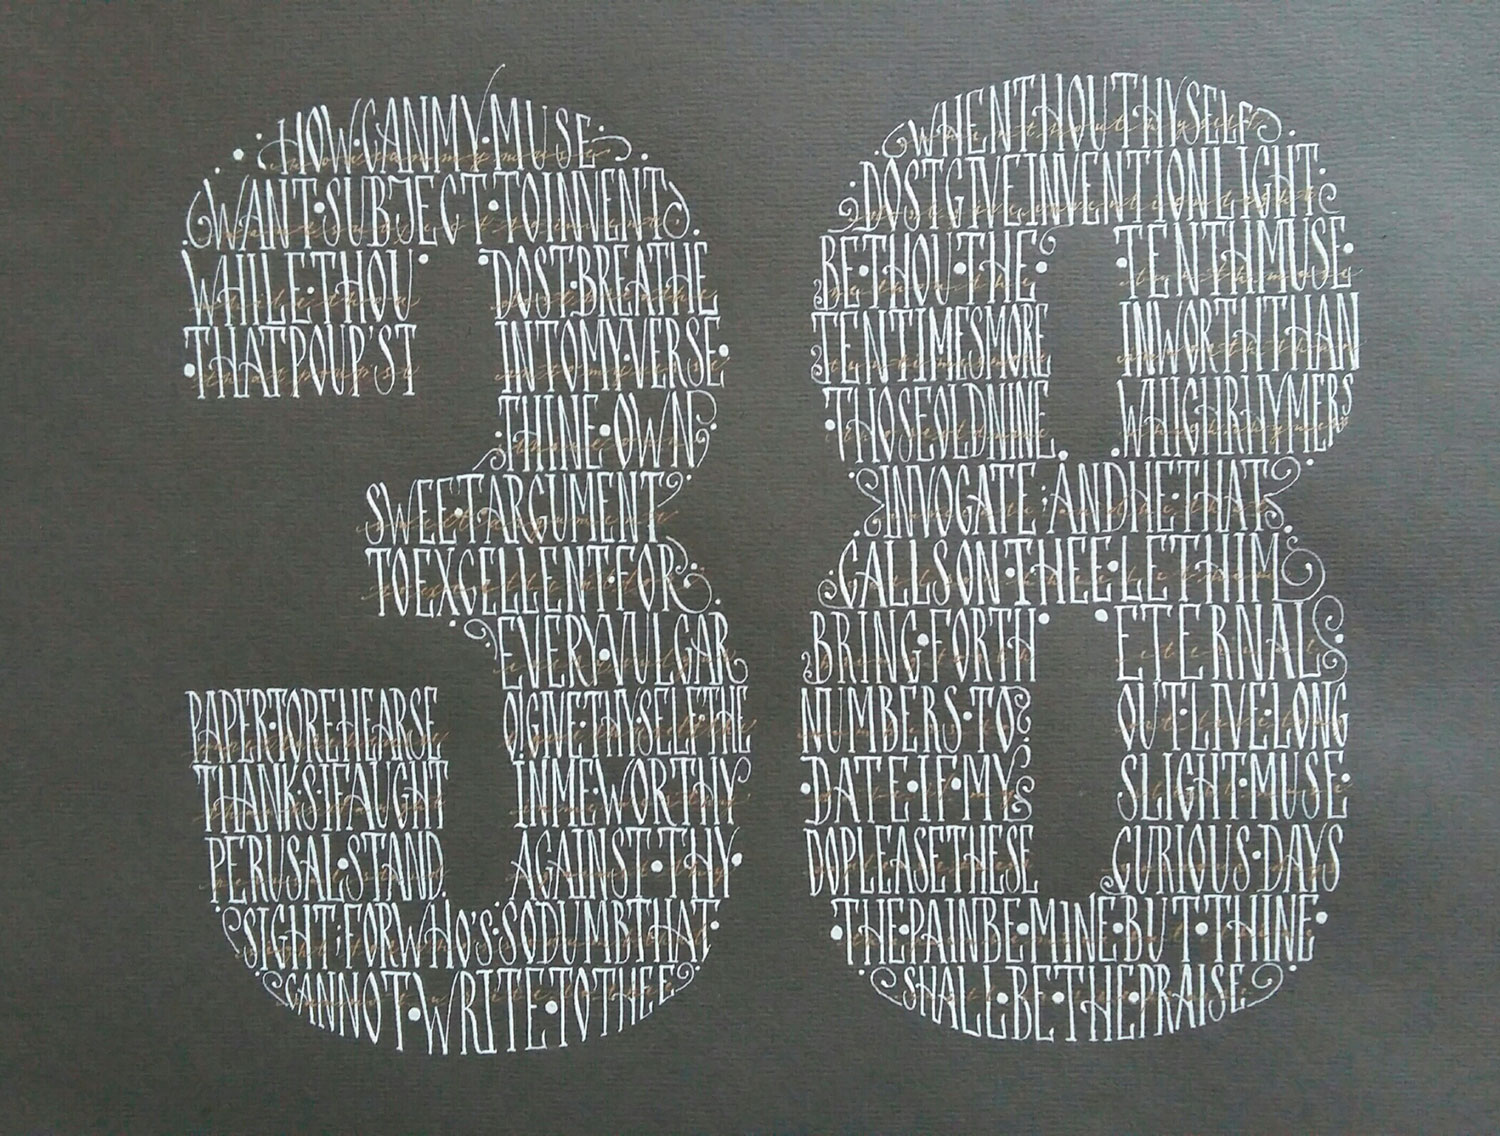 HOW·CAN MY·MUSE
WANT·SUBJECT·TO INVENT
WHILE THOU DOST·BREATHE
THAT POUR'ST INTO MY·VERSE
THINE·OWN
SWEET·ARGUMENT
TO EXCELLENT·FOR
EVERY·VULGAR
PAPER·TO REHEARSE O,GIVE THY SELF THE
THANKS·IF AUGHT IN ME·WORTHY
PERUSAL·STAND. AGAINST·THY
SIGHT;FOR WHO'S·SO DUMB THAT
CANNOT·WRITE·TO THEE
WHEN THOU THYSELF
DOST GIVE INVENTION LIGHT
BE·THOU·THE· TENTH MUSE·
TEN TIMES MORE IN WORTH THAN
THOSE OLD NINE. WHICH RHYMERS
INVOCATE; AND HE·THAT
CALLS ON·THEE·LET HIM
BRING·FORTH ETERNAL
NUMBERS·TO OUT·LIVE·LONG
DATE·IF·MY SLIGHT·MUSE·
DO PLEASE THESE CURIOUS·DAYS
THE PAIN BE·MINE·BUT·THINE
SHALL·BE THE PRAISE